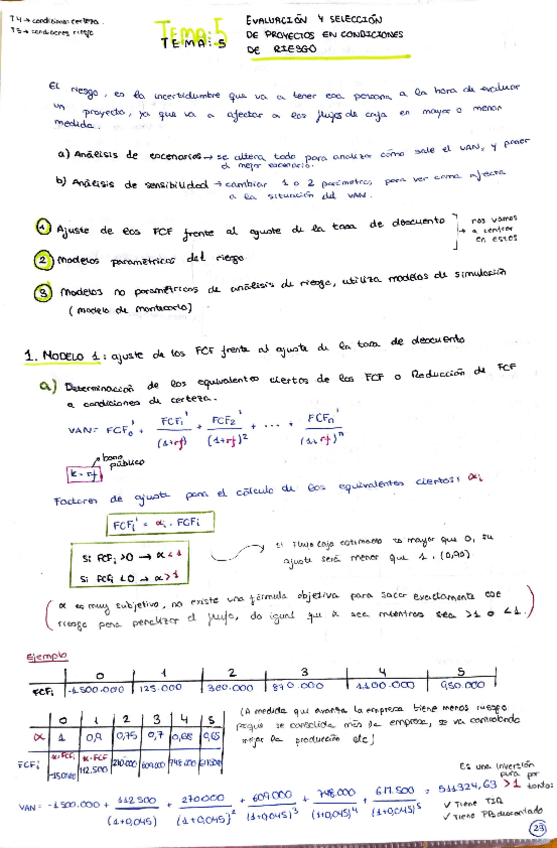 T4 → condiciones certeza.
T5 → condiciones riesgo
TEMA: 5
TEMA: 5
EVALUACIÓN Y SELECCIÓN
DE PROYECTOS EN CONDICIONES
DE RIESGO
El riesgo, es la incertidumbre que va a tener esa persona a la hora de evaluar
un proyecto, ya que va a afectar a los flujos de caja en mayor o menor
medida.
a) Análisis de escenarios → se altera todo para analizar cómo sale el VAN, y poner
el mejor escenario.
b) Análisis de sensibilidad → cambiar 1 o 2 parámetros para ver como afecta
a la situación del VAN.
1 Ajuste de los FCF frente al ajuste de la tasa de descuento
nos vamos
→ a centrar
en estos
2 Modelos paramétricos del riesgo
3 Modelos no paramétricos de análisis de riesgo, utiliza modelos de simulación
(modelo de montecarlo)
1. MODELO 1: ajuste de los FCF frente al ajuste de la tasa de descuento
a) Determinación de los equivalentes ciertos de los FCF o Reducción de FCF
a condiciones de certeza.
VAN = FCF₀' + FCF₁'/(1+rf) + FCF₂'/(1+rf)² + ... + FCFn'/(1+rf)ⁿ
bono
público
k = rf
Factores de ajuste para el cálculo de los equivalentes ciertos: αi
FCFi' = αi · FCFi
Si FCFi >0 → α<1
Si FCFi <0 → α>1
si flujo caja estimado es mayor que 0, su
ajuste será menor que 1. (0,95)
(α es muy subjetivo, no existe una fórmula objetiva para sacar exactamente ese
riesgo para penalizar el flujo, da igual que α sea mientras sea >1 o <1.)
Ejemplo
0 1 2 3 4 5
FCFi -1500.000 125.000 360.000 870.000 1100.000 950.000
0 1 2 3 4 5
α 1 0,9 0,75 0,7 0,68 0,65
α·FCFi α·FCF
FCFi' -1500.000 112.500 270.000 609.000 748.000 617.500
(A medida que avanza la empresa tiene menos riesgo
porque se consolida más la empresa, se va controlando
mejor la producción etc)
Es una inversión
pura por
tanto:
VAN = -1.500.000 + 112.500/(1+0,045) + 270000/(1+0,045)² + 609000/(1+0,045)³ + 748.000/(1+0,045)⁴ + 617.500/(1+0,045)⁵ = 511324,63 >1
✓ Tiene TIR
✓ Tiene PB descontado
23